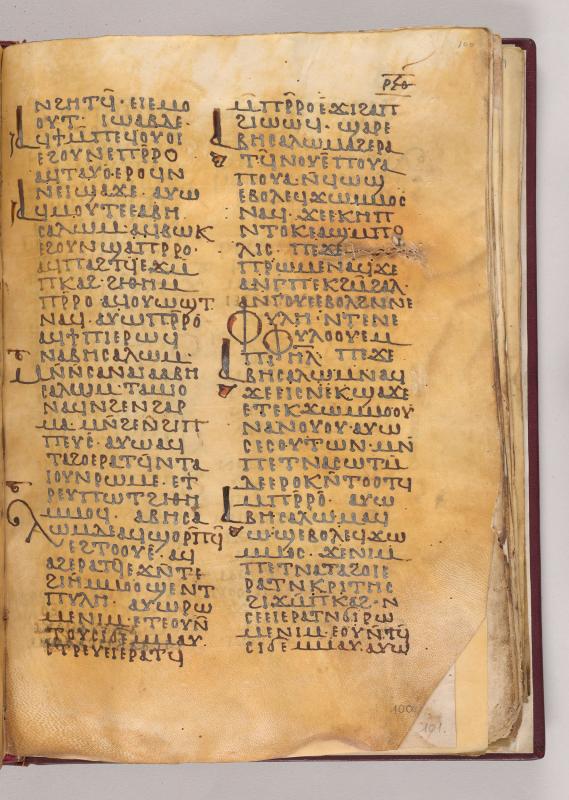 ⲣ̅ⲝ̅ⲑ̅
100
ⲛϩⲏⲧϥ̄· ⲉⲓⲉⲙⲟ
ⲟⲩⲧ· ⲓⲱⲁⲃⲇⲉ
ⲁϥϯⲙ̄ⲡⲉϥⲟⲩⲟⲓ
ⲉϩⲟⲩⲛⲉⲡⲣ̄ⲣⲟ
ⲁϥⲧⲁⲩⲟ·ⲉⲣⲟϥⲛ
ⲛⲉⲓϣⲁϫⲉ· ⲁⲩⲱ
ⲁϥⲙⲟⲩⲧⲉⲉⲁⲃⲏ
ⲥⲁⲗⲱⲙ·ⲁϥⲃⲱⲕ
ⲉϩⲟⲩⲛϣⲁⲡⲣ̄ⲣⲟ·
ⲁϥⲡⲁϩⲧϥ̄ⲉϫⲙ̄
ⲡⲕⲁϩ·ϩⲓⲑⲏⲙ̄
ⲡⲣ̄ⲣⲟ ⲁϥⲟⲩⲱϣⲧ
ⲛⲁϥ·ⲁⲩⲱⲡⲣ̄ⲣⲟ
ⲁϥϯⲡⲓⲉⲣⲱϥ
ⲛⲁⲃⲏⲥⲁⲗⲱⲙ·
ⲙⲛ̄ⲛ̄ⲥⲁⲛⲁⲓⲁⲁⲃⲏ
ⲥⲁⲗⲱⲙ·ⲧⲁⲙⲓⲟ
ⲛⲁϥⲛϩⲉⲛϩⲁⲣ
ⲙⲁ·ⲙⲛ̄ϩⲉⲛ̄ϩⲓⲡ
ⲡⲉⲩⲉ·ⲁⲩⲱⲁϥ
ⲧⲁϩⲟⲉⲣⲁⲧϥ̄ⲛⲧⲁ
ⲓⲟⲩⲛⲣⲱⲙⲉ·ⲉⲧ
ⲣⲉⲩⲡⲱⲧϩⲓⲑⲏ
ⲙⲙⲟϥ· ⲁⲃⲏⲥⲁ
ⲗⲱⲙⲇⲉⲁϥϣⲟⲣⲡϥ̄
ⲉϩⲧⲟⲟⲩⲉ·ⲁϥ
ⲁϩⲉⲣⲁⲧϥⲉϫⲛ̄ⲧⲉ
ϩⲓⲏⲙⲙⲟⲟϣⲉⲛⲧ
ⲡⲩⲗⲏ· ⲁⲩⲱⲣⲱ
ⲙⲉⲛⲓⲙ·ⲉⲧⲉⲟⲩⲛ̄
ⲧⲟⲩⲥⲓⲇⲉⲙⲙⲁⲩ·
ⲉⲧⲣⲉⲩⲉⲓⲉⲣⲁⲧϥ
ⲙ̄ⲡⲣ̄ⲣⲟⲉϫⲓϩⲁⲡ
ϩⲓⲱⲱϥ· ϣⲁⲣⲉ
ⲁⲃⲏⲥⲁⲗⲱⲙⲁϩⲉⲣⲁ
ⲧϥ̄ⲛⲟⲩⲉ̄ⲡⲟⲩⲁ
ⲡⲟⲩⲁ·ⲛ̄ϥⲱϣ
ⲉⲃⲟⲗⲉϥϫⲱⲙⲙⲟⲥ
ⲛⲁϥ·ϫⲉⲉⲕⲏⲡ
ⲛⲧⲟⲕⲉⲁϣⲙ̄ⲡⲟ
ⲗⲓⲥ· ⲡⲉϫⲉ
ⲡⲣⲱⲙⲉⲛⲁϥϫⲉ
ⲁⲛⲅ̄ⲡⲉⲕϩⲙ̄ϩⲁⲗ·
ⲁⲛⲅⲟⲩⲉⲃⲟⲗϩⲛ̄ⲛⲉ
ⲫⲩⲗⲏ·ⲛⲧⲉⲛⲉ
ⲫⲩⲗⲟⲟⲩⲉⲙ
ⲡⲓ̅ⲏ̅ⲗ̅· ⲡⲉϫⲉ
ⲁⲃⲏⲥⲁⲗⲱⲙⲛⲁϥ
ϫⲉⲉⲓⲥⲛⲉⲕϣⲁϫⲉ
ⲉⲧⲉⲕϫⲱⲙⲙⲟⲟⲩ
ⲛⲁⲛⲟⲩⲟⲩ·ⲁⲩⲱ
ⲥⲉⲥⲟⲩⲧⲱⲛ·ⲙⲛ̄
ⲡⲉⲧⲛⲁⲥⲱⲧⲙ̄
ⲇⲉⲉⲣⲟⲕⲛ̄ⲧⲟⲟⲧϥ
ⲙ̄ⲡⲣ̄ⲣⲟ· ⲁⲩⲱ
ⲁⲃⲏⲥⲁⲗⲱⲙⲁϥ
ⲱϣⲉⲃⲟⲗⲉϥϫⲱ
ⲙⲙⲟⲥ·ϫⲉⲛⲓⲙ
ⲡⲉⲧⲛⲁⲧⲁϩⲟⲓⲉ
ⲣⲁⲧⲛⲕⲣⲓⲧⲏⲥ
ϩⲓϫⲙ̄ⲡⲕⲁϩ·ⲛ
ⲥⲉⲉⲓⲉⲣⲁⲧⲛϭⲓⲣⲱ
ⲙⲉⲛⲓⲙ·ⲉⲟⲩⲛ̄ⲧϥ
ⲥⲓⲇⲉⲙⲙⲁⲩ·ⲁⲩⲱ
100
101.